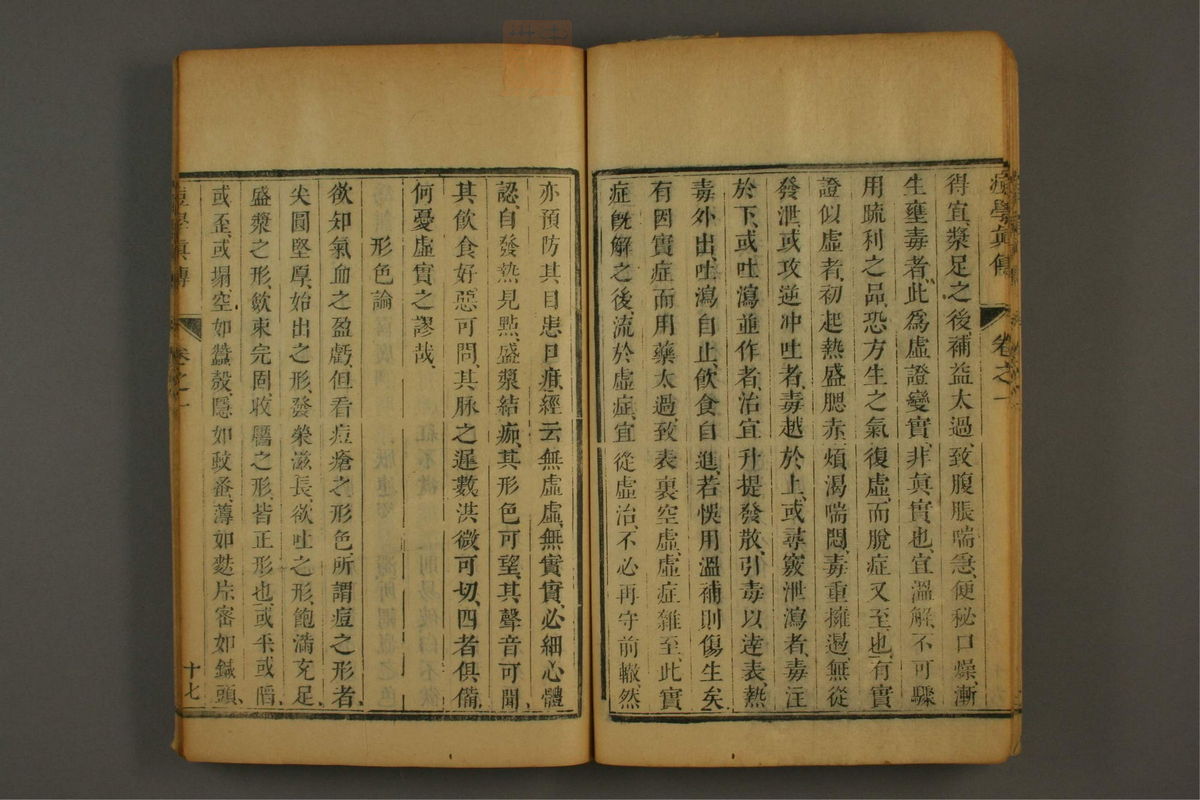 痘學真傳 卷之一
得宜漿足之後補益太過致腹脹喘急便秘口燥漸
生壅毒者此爲虛證變實非真實也宜溫解不可驟
用疏利之品恐方生之氣復虛而脫症又至也有實
證似虛者初起熱盛腮赤煩渴喘悶毒重擁遏無從
發泄或攻逆冲吐者毒越於上或尋竅泄瀉者毒注
於下或吐瀉並作者治宜升提發散引毒以達表熱
毒外出吐瀉自止飲食自進若悞用溫補則傷生矣
有因實症而用藥太過致表裏空虛虛症雜至此實
症旣解之後流於虛症宜從虛治不必再守前轍然
亦預防其目患口疳經云無虛虛無實實必細心體
認自發熱見點盛漿結痂其形色可望其聲音可聞
其飲食好惡可問其脉之遲數洪微可切四者俱備
何憂虛實之謬哉
形色論
欲知氣血之盈虧但看痘瘡之形色所謂痘之形者
尖圓堅厚始出之形發榮滋長欲壯之形飽滿充足
盛漿之形斂束完固收靨之形皆正形也或平或陷
或歪或塌空如蠶殼隱如蚊蚤薄如麩片密如鍼頭
痘學真傳 卷之一 十七